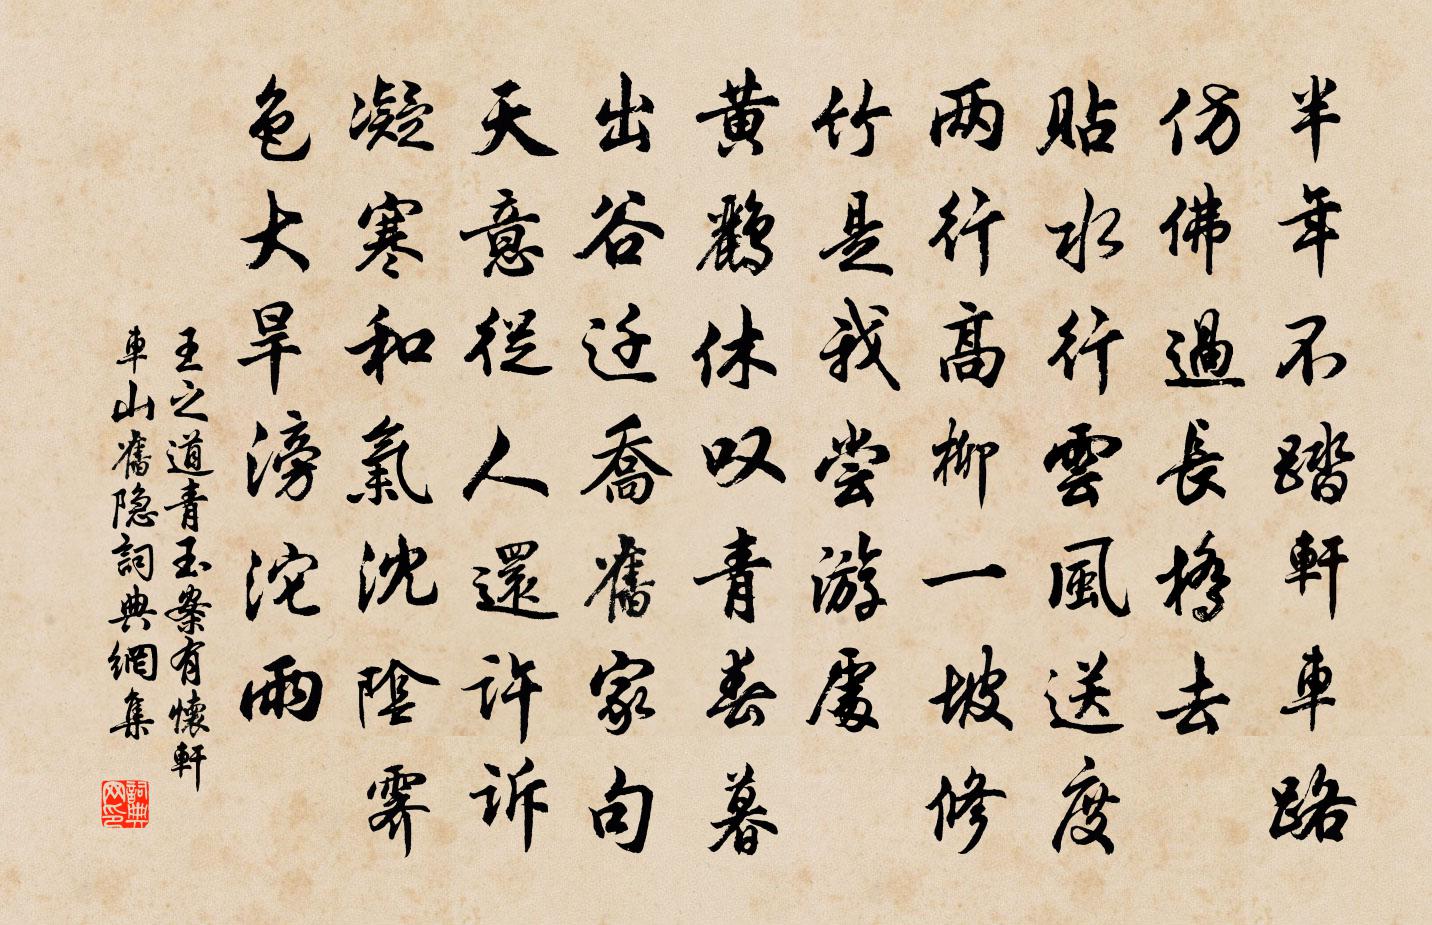 半年不踏軒車路
仿佛過長橋去
貼水行雲風送度
两行高柳一坡修
竹是我嘗游處
黄鸝休叹青春暮
出谷迁喬舊家句
天意從人還許訴
凝寒和氣沈陰霽
色大旱滂沱雨
王之道青玉案有懷軒
車山舊隐詞典網集
詞典
网印